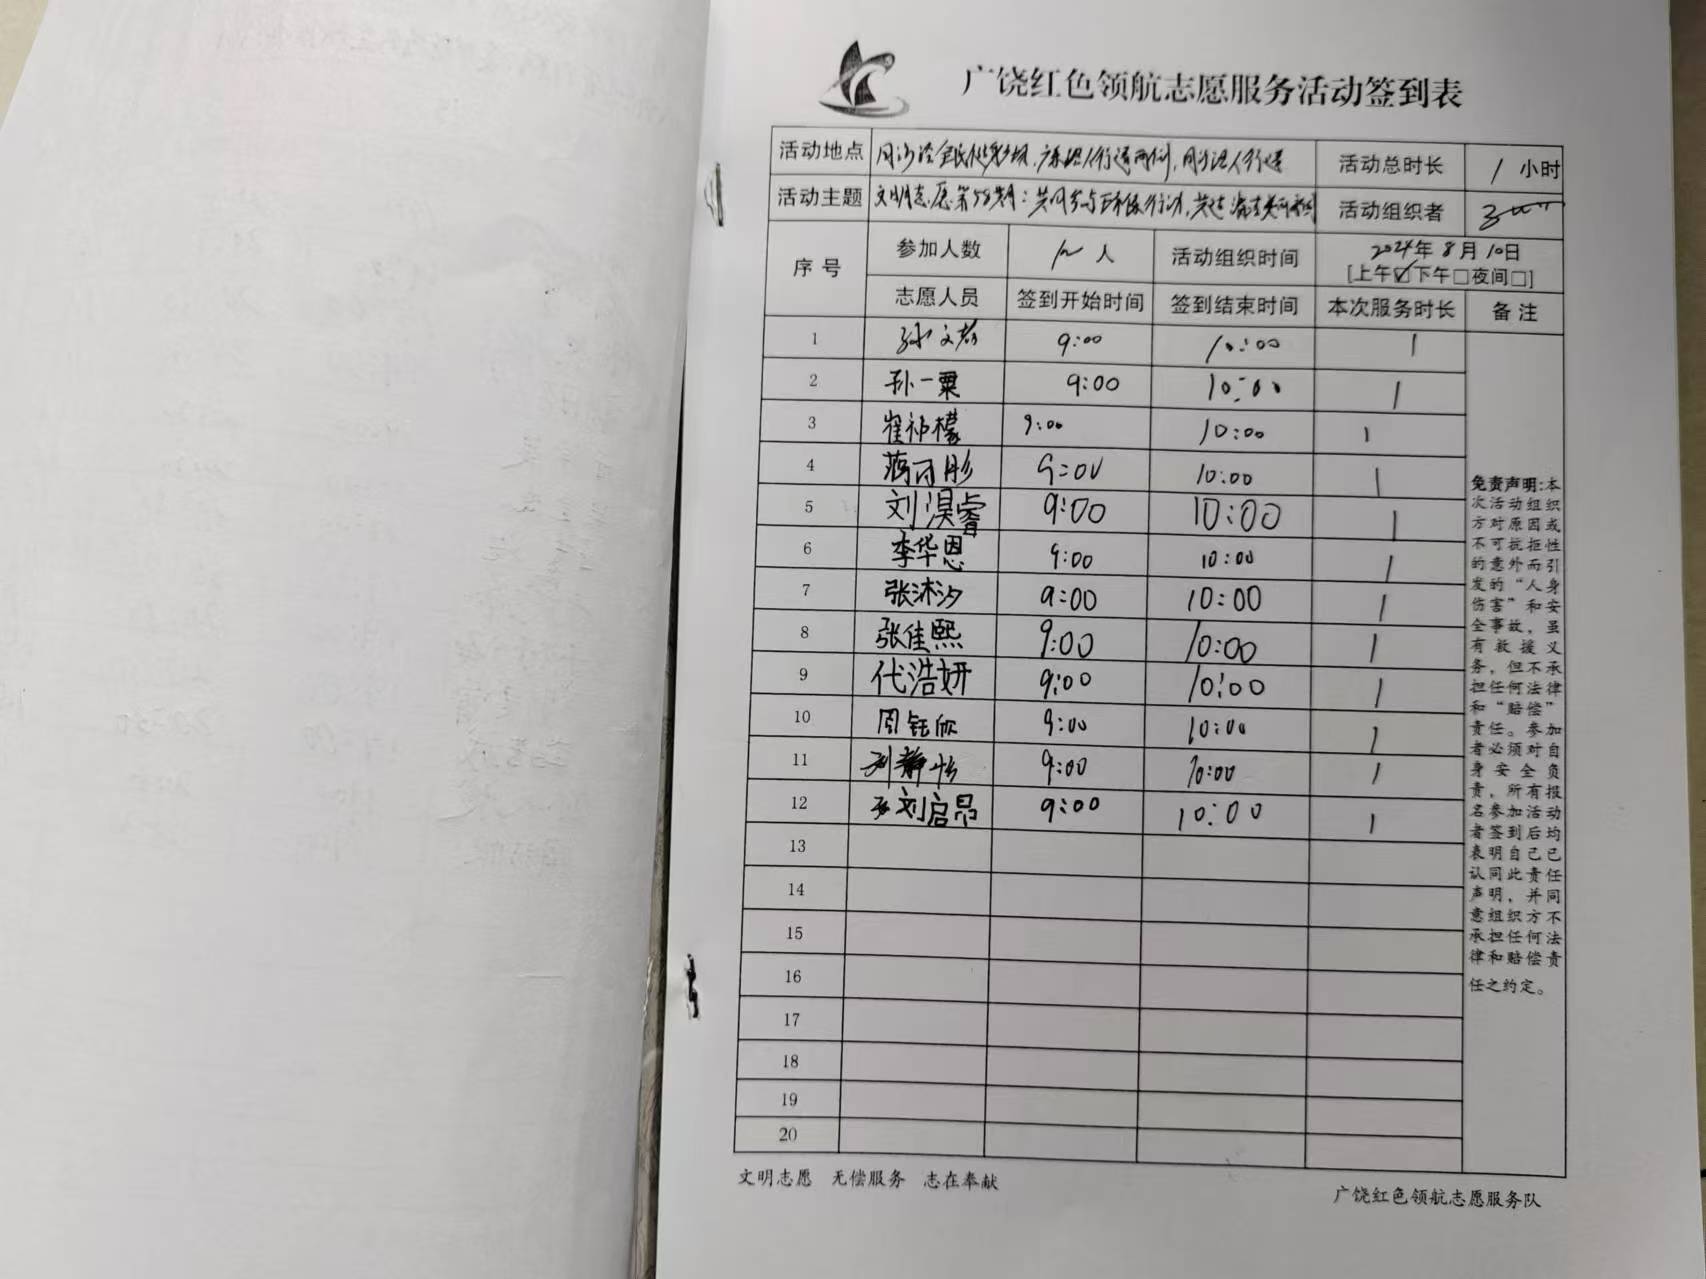 广饶红色领航志愿服务活动签到表
活动地点 活动总时长 1 小时
活动主题 文明志愿第58期：共同参与环保行动，共建 活动组织者
序号 参加人数 12 人 活动组织时间 2024年 8月 10日
[上午☑下午□夜间□]
志愿人员 签到开始时间 签到结束时间 本次服务时长 备注
1 孙文 9:00 10:00 1
2 孙一粟 9:00 10:00 1
3 崔祁檬 9:00 10:00 1
4 蒋可彤 9:00 10:00 1
5 刘淏睿 9:00 10:00 1
6 李华恩 9:00 10:00 1
7 张沐汐 9:00 10:00 1
8 张佳熙 9:00 10:00 1
9 代浩妍 9:00 10:00 1
10 周钰欣 9:00 10:00 1
11 刘静怡 9:00 10:00 1
12 刘启昂 9:00 10:00 1
13
14
15
16
17
18
19
20
免责声明:本
次活动组织
方对原因或
不可抗拒性
的意外而引
发的“人身
伤害”和安
全事故，虽
有救援义
务，但不承
担任何法律
和“赔偿”
责任。参加
者必须对自
身安全负
责，所有报
名参加活动
者签到后均
表明自己已
认同此责任
声明，并同
意组织方不
承担任何法
律和赔偿责
任之约定。
文明志愿 无偿服务 志在奉献
广饶红色领航志愿服务队